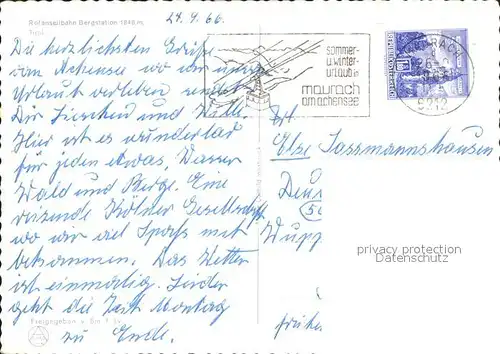 Rofanseilbahn Bergstation 1840 m,
Tirol
24.9.66.
Die herzlichsten Grüße
vom Achensee wo wir unseren
Urlaub verleben sendet
Dir Lieschen und Willi
Hier ist es wunderbar
für jeden etwas, Wasser
Wald und Berge. Eine
reizende Kölner Gesellschaft
wo wir viel Spaß mit
bekommen. Das Wetter
ist einmalig. Leider
geht die Zeit Montag
zu Ende.
sommer-
u. winter-
urlaub in
maurach
am achensee
MAURACH
6212
Frl.
Else Sassmannshausen
Wupp
früher
privacy protection
Datenschutz
Freigegeben v. Bm. f.